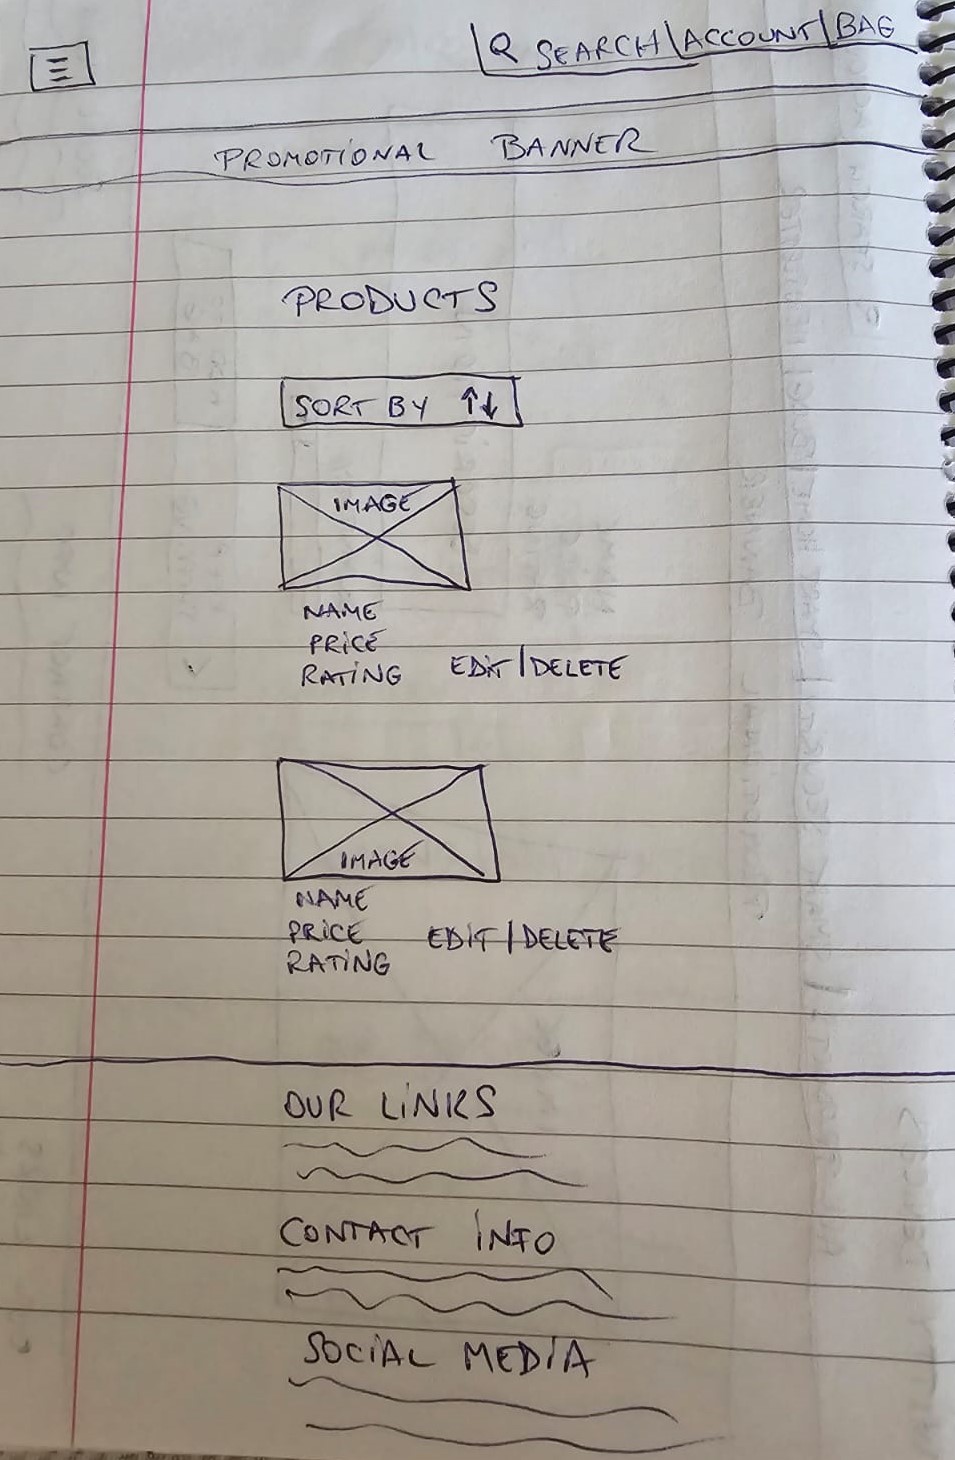 SEARCH|ACCOUNT|BAG
PROMOTIONAL BANNER
PRODUCTS
SORT BY ↑↓
IMAGE
NAME
PRICE
RATING EDIT/DELETE
IMAGE
NAME
PRICE EDIT/DELETE
RATING
OUR LINKS
CONTACT INFO
SOCIAL MEDIA